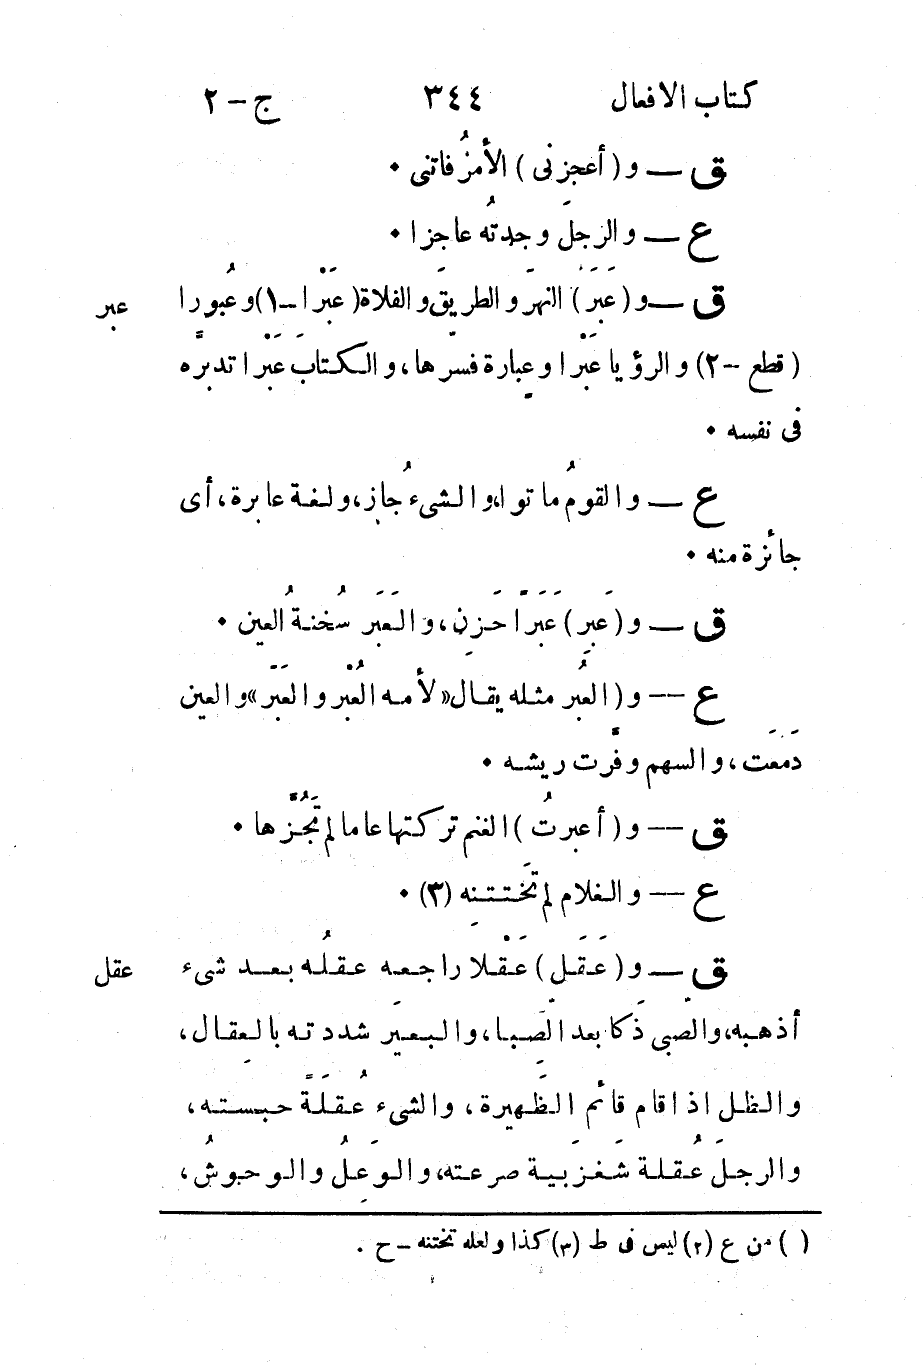 كتاب الافعال ٣٤٤ ج – ٢
ق — و ( أعجزنى ) الأمرُ فاتنى ٠
ع — والرجلَ وجدتُه عاجزا ٠
ق — و ( عَبَرَ ) النهرَ والطريقَ والفلاة ( عَبْرا – ١ ) وعُبورا
عبر
( قطع – ٢ ) والرؤيا عَبْرا وعِبارة فسّرها ، والكتابَ عَبْرا تدبرَّه
فى نفسه ٠
ع — والقومُ ماتوا، والشىءُ جاز، ولغة عابرة ، أى
جائزة منه ٠
ق — و ( عَبِرَ ) عَبَرَاً حَزِن ، والعَبَر سُخنةُ العين ٠
ع — و ( العُبر مثله يقال « لأمه العُبْر والعَبَر » والعين
دَمَعَت ، والسهم وفَّرت ريشه ٠
ق — و ( أعبرتُ ) الغنم تركتها عاما لم تَجُزَّها ٠
ع — والغلام لم تَختتنِه (٣) ٠
ق — و ( عَقَل ) عَقْلا راجعه عقلُه بعد شىء
عقل
أذهبه، والصبى ذَكا بعد الصِّبا ، والبعيرَ شددته بالعِقال ،
والظل اذا قام قائم الظَهيرة ، والشىء عُقلَةً حبسته ،
والرجلَ عُقلة شَغزَبية صرعته، والوَعِلُ والوحوشُ ،
( ) من ع (٢) ليس فى ط (٣) كذا ولعله تختنه – ح .